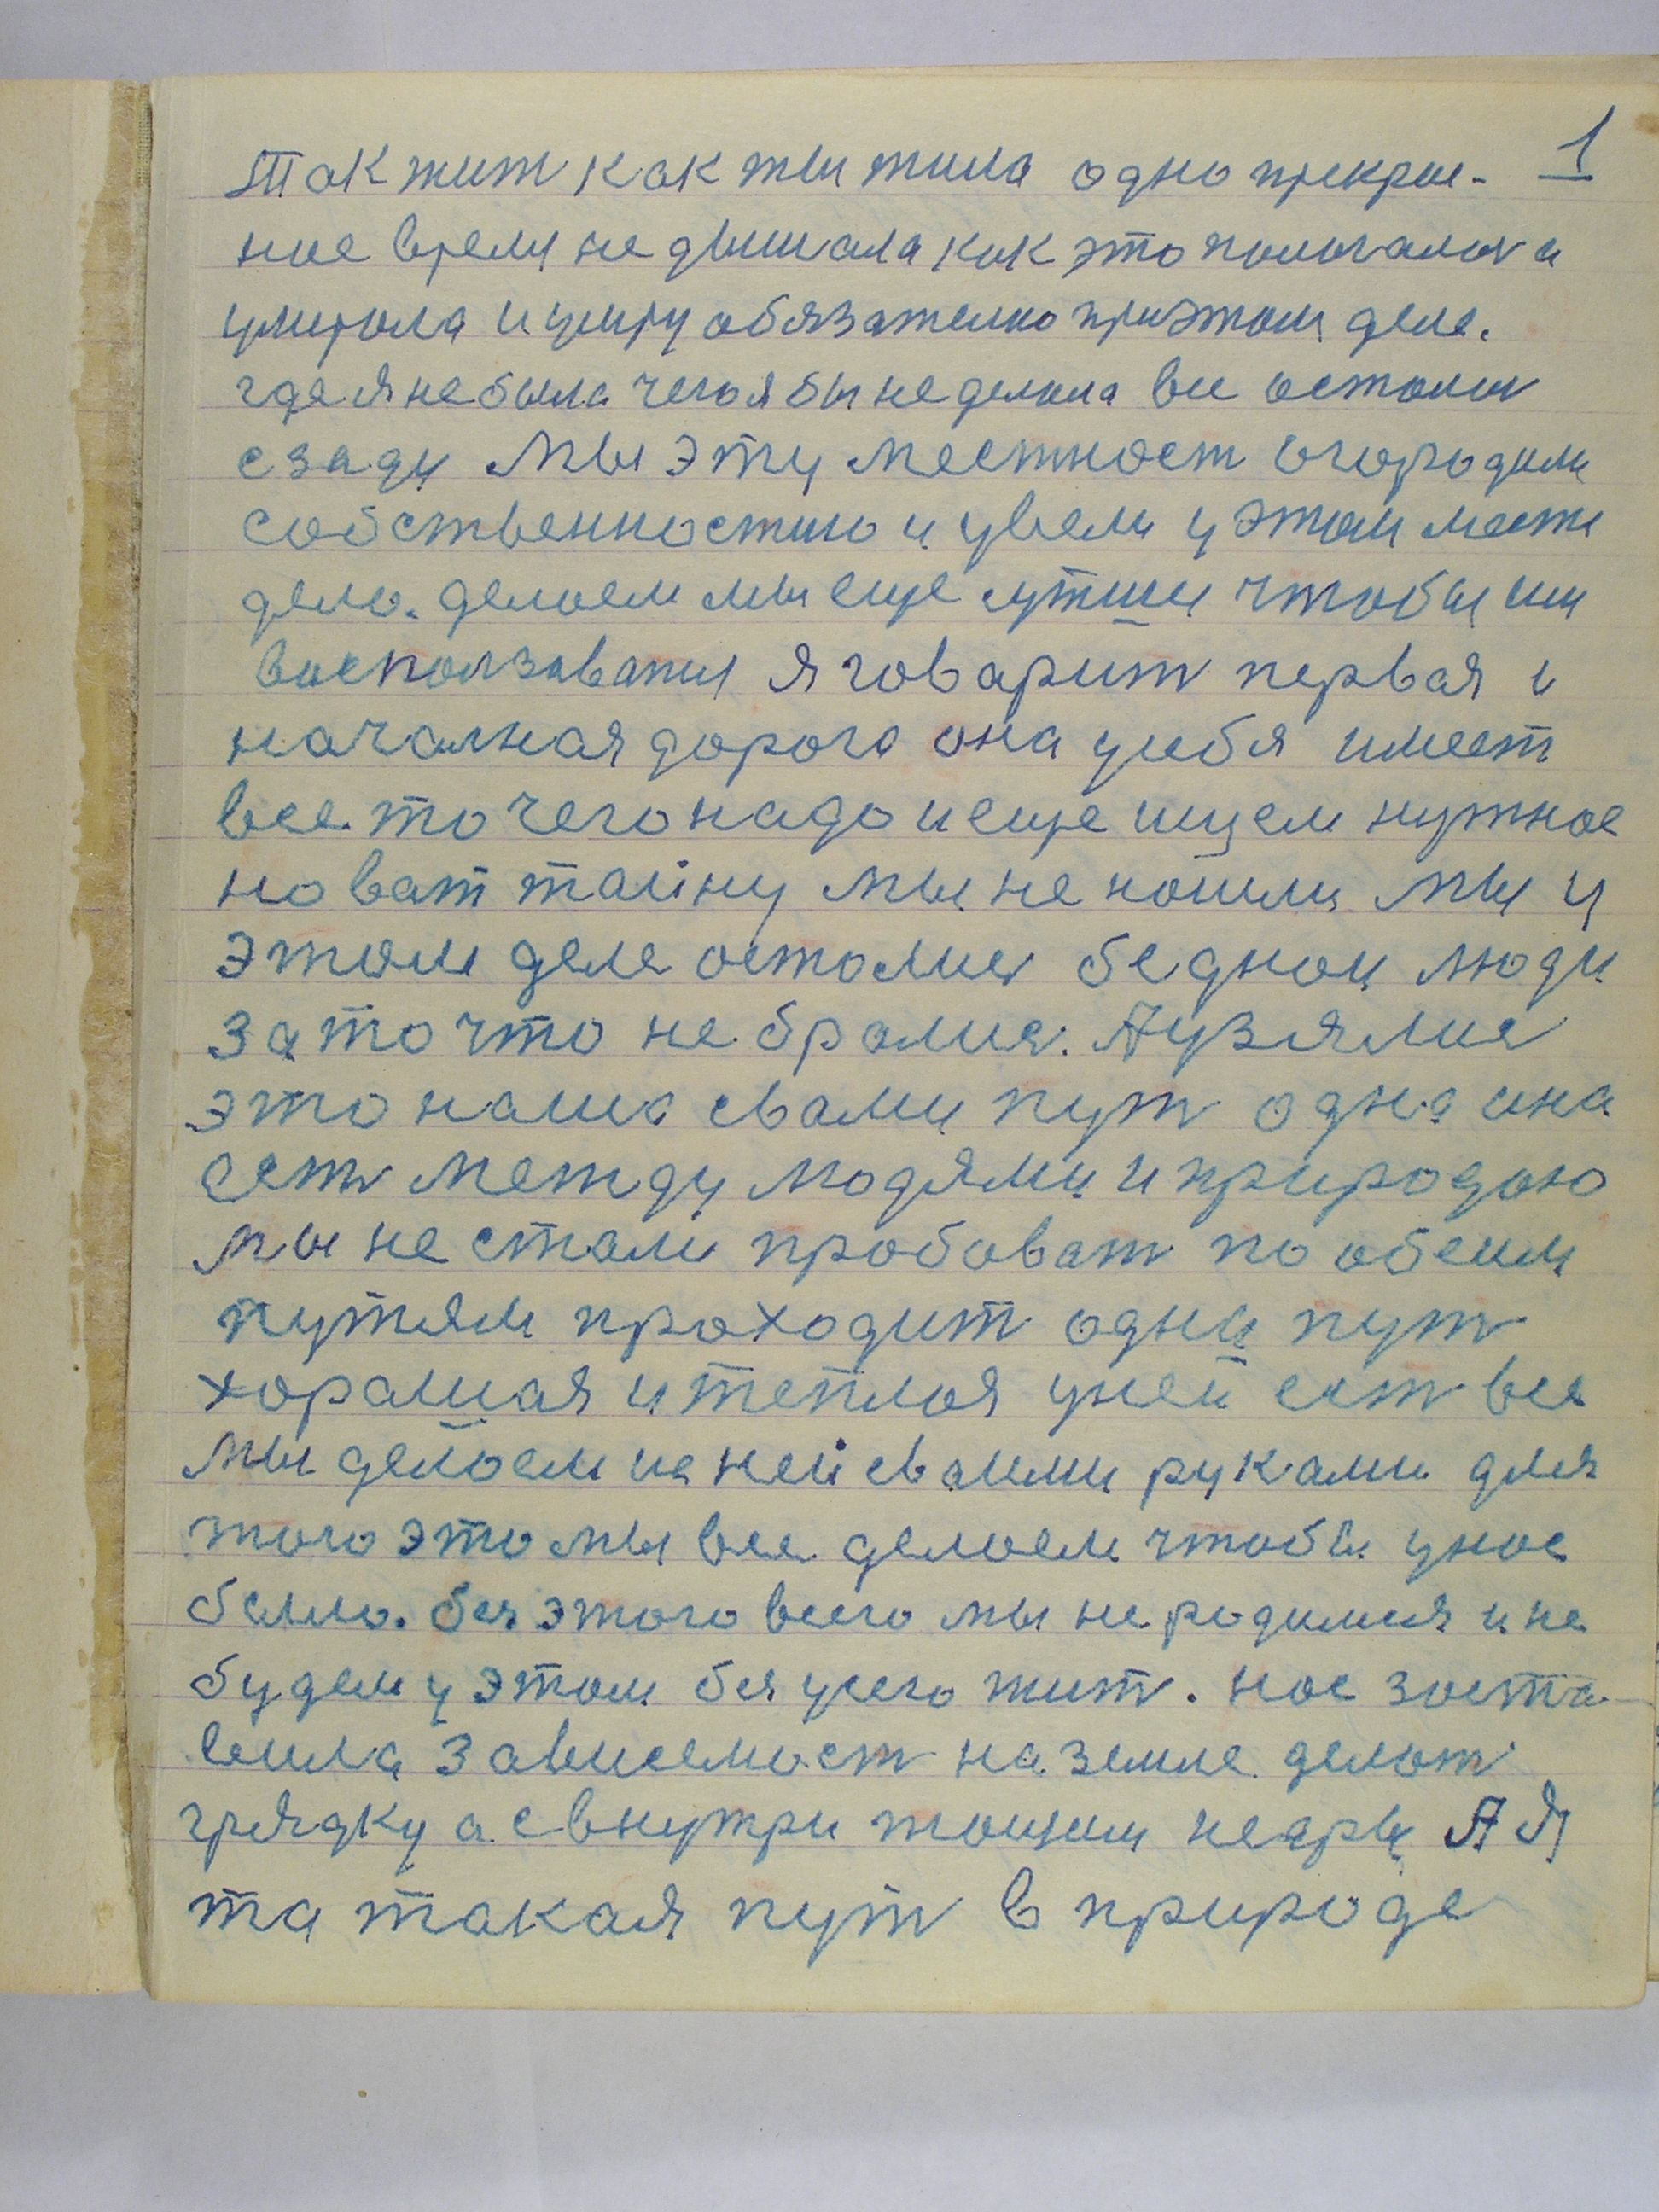 1
Так жит как ты жила одно прекрас-
ное время не дышала как это полагалос а
умирала и умру обязателно приэтом деле.
где я небыла чего я бы не делала все осталос
сзаду Мы эту местност огородили
собственностию и увели у этом месте
дело. делаем мы еще лутше чтобы им
воспользоватся я говарит первая и
началная дорога она усебя имеет
все то чего надо и еще ищем нужное
но ват тайну мы не нашли мы у
этом деле осталися беднои люди
за то что не бралися. А узялися
это наша свами пут одна она
ест между людями и природою
мы не стали пробоват по обеим
путям проходит одна пут
хорашая и теплая уней ест все
мы делаем на ней сваими руками для
того это мы все делаем чтобы унас
было. без этого всего мы не родимся и не
будем у этом без усего жит. нас заста-
вила зависемост на земле делат
грядку а свнутри тащим недры А я
та такая пут в природе